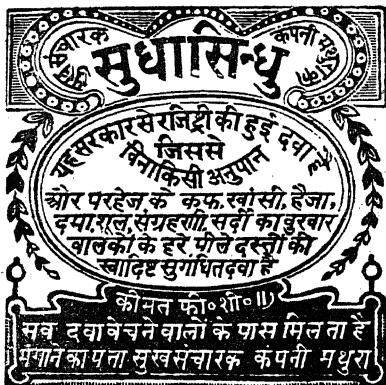 सुखसंचारक
सुधासिन्धु
कंपनी मथुरा का
यह सरकार से रजिट्री की हुई दवा है
जिससे
विनाकिसी अनुपान
और परहेज के कफ. खांसी, हैजा,
दमा, शूल, संग्रहणी, सर्दी का वुखार
वालकों के हरे पीले दस्तों की
स्वादिष्ट सुगंधित दवा है
कीमत फी॰ शी॰ ॥)
सव दवा वेचने वालों के पास मिलता है
मगाने का पता सुख संचारक कंपनी मथुरा